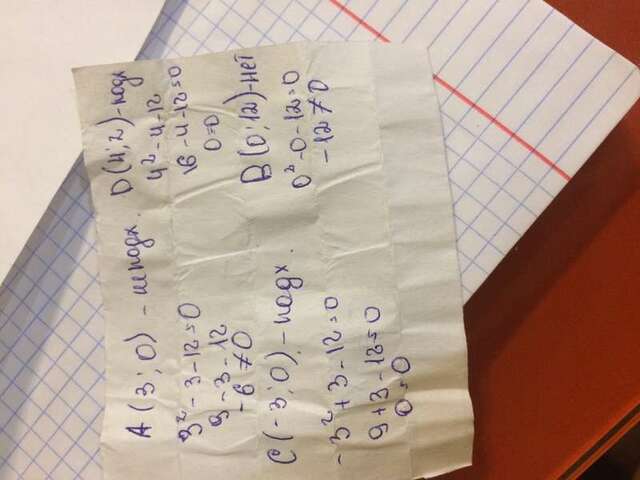 A(3;0) - не подх.
3² - 3 - 12 = 0
9 - 3 - 12
-6 ≠ 0
C(-3;0) - подх.
-3² + 3 - 12 = 0
9 + 3 - 12 = 0
0 = 0
D(4;2) - подх
4² - 4 - 12
16 - 4 - 12 = 0
0 = 0
B(0;12) - нет
0² - 0 - 12 = 0
-12 ≠ 0